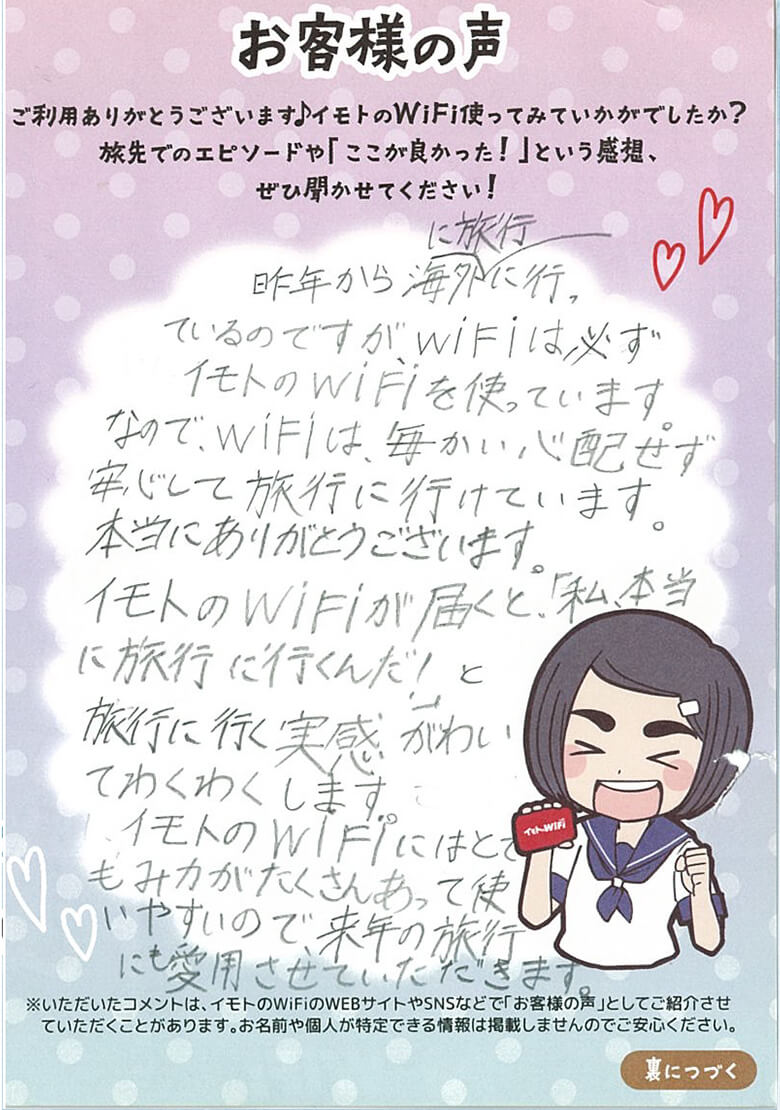 お客様の声
ご利用ありがとうございます♪イモトのWiFi使ってみていかがでしたか?
旅先でのエピソードや「ここが良かった!」という感想、
ぜひ聞かせてください!
に旅行
昨年から海外に行っ
ているのですが、WiFiは必ず
イモトのWiFiを使っています。
なので、WiFiは、毎かい心配せず
安心して旅行に行けています。
本当にありがとうございます。
イモトのWiFiが届くと、「私、本当
に旅行に行くんだ!」と
旅行に行く実感がわい
てわくわくします。
イモトのWiFiにはとて
もみ力がたくさんあって使
いやすいので、来年の旅行
にも愛用させていただきます。
イモトのWiFi
※いただいたコメントは、イモトのWiFiのWEBサイトやSNSなどで「お客様の声」としてご紹介させ
ていただくことがあります。お名前や個人が特定できる情報は掲載しませんのでご安心ください。
裏につづく